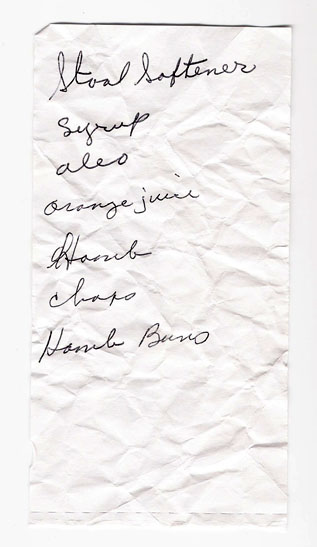 Stool Softener
Syrup
oleo
orange juice
Hamb
chops
Hamb Buns